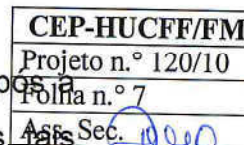 CEP-HUCFF/FM
Projeto n.° 120/10
pós a
Folha n.° 7
Ass. Sec.